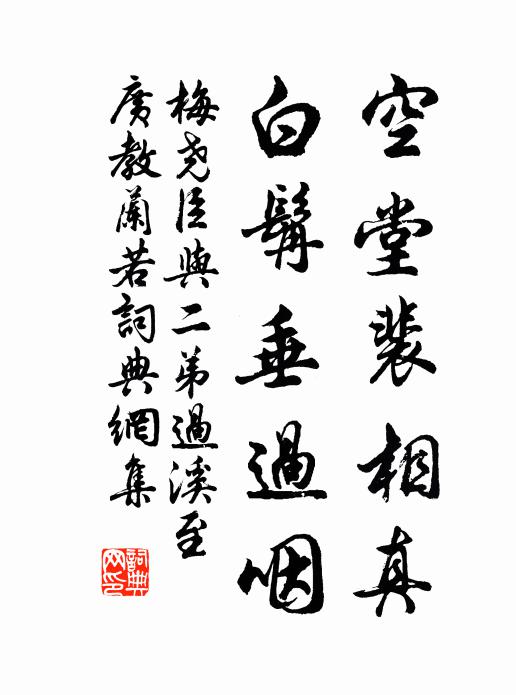 空堂裴相真
白髯垂過咽
梅堯臣與二弟過溪至
廣教蘭若詞典網集
詞典網印